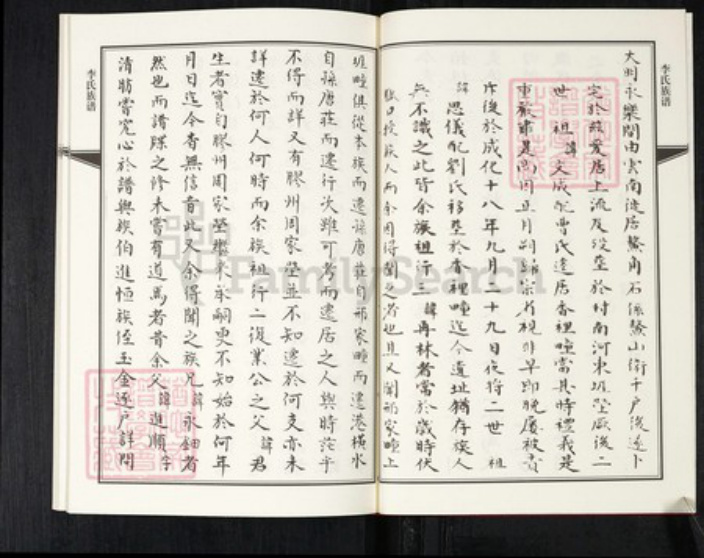 李氏族谱
大明永樂間由雲南徙居鰲角石係鰲山衛千戶後遂卜
定於茲爰居上流及歿塋於村南河東堐塋厥後二
世祖諱文成配曹氏遷居香裡疃當其時禮義是
重嚴肅是尚因正月
序後於成化十八年九月二十九日夜將二世祖
諱思儀配劉氏移塋於香裡疃迄今遺址猶存族人
無不識之此皆余族祖行三諱再林者當於歲時伏
口授族人而余因得聞之者也且又聞邢家疃上
堐疃俱從本族而遷孫唐莊自邢家疃而遷港橫水
自孫唐莊而遷行次雖可考而遷居之人與時茫乎
不得而詳又有膠州周家塋並不知遷於何支亦未
詳遷於何人何時而余族祖行二復業公之父諱君
生者實自膠州周家塋繼來承嗣更不知始於何年
月日迄今杳無信音此又余得聞之族兄諱永鈿者
然也而譜牒之修未嘗有道焉者昔余父諱進順字
清肪嘗究心於譜與族伯進恒族侄玉金逐戶詳問
李氏族谱
FamilySearch